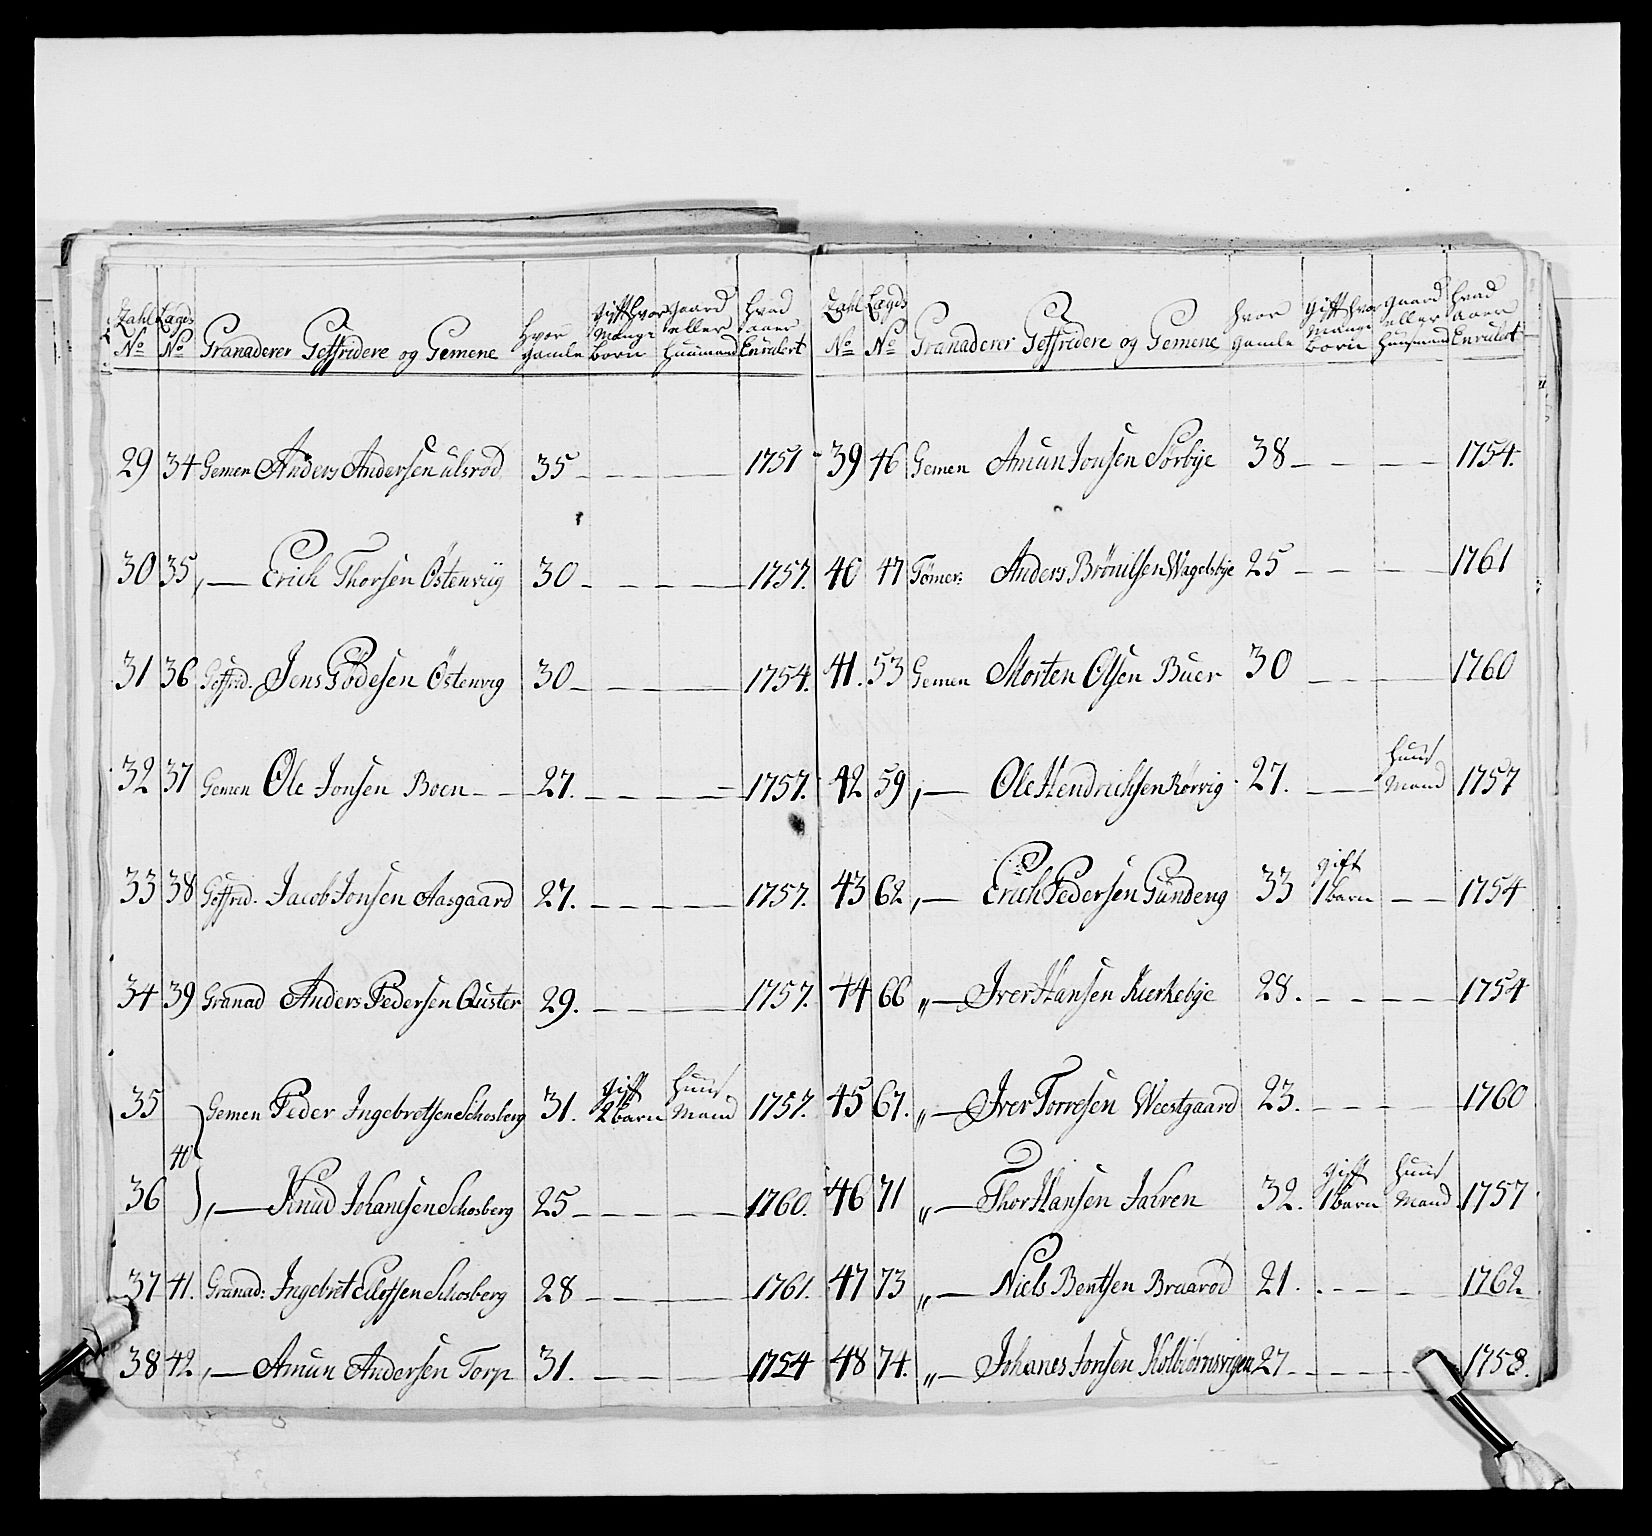 Zahl Lægds Gift hvor gaard hvad
hvor mange eller aaer
No No Granaderer Geffridere og Gemene gamle børn huusmand Enrulert
29 34 Gemen Anders Andersen ulsrød 35 - - - - 1751
30 35 „ — Erich Thorsen Östenviig 30 - - - - 1757.
31 36 Geffrid. Jens Gödesen Östenvig 30 - - - - 1754.
32 37 Gemen Ole Jonsen Boen - - 27. - - - - 1757.
33 38 Geffrid. Jacob Jonsen Aasgaard 27. - - - - 1757.
34 39 Granad Anders Pedersen Quster 29. - - - - 1757.
gift huus
35 Gemen Peder Ingebretsen Schosberg 31. 2 barn Mand 1757.
40
36 „ — Knud Johansen Schosberg 25 - - - - 1760.
37 41. Granad: Ingebret Ellefsen Schosberg 28 - - - - 1761.
38 42 „ — Amun Andersen Torp 31. - - - - 1754
Zahl Lægds Gift hvor gaard hvad
hvor mange eller aaer
No No Granaderer Geffridere og Gemene gamle børn huusmand Enrulert
39 46 Gemen Amun Jonsen Sørbye 38 - - - - 1754.
40 47 Tömer: Anders Brönilsen Wagelsbye 25 - - - - 1761
41. 53 Gemen Morten Olsen Buer 30 - - - - 1760
huus
42 59 „ — Ole Hendrichsen Rørvig 27. - - Mand 1757
gift
43 62 „ — Erich Pedersen Gundeng 33 1 barn - - 1754
44 66 „ — Iver Hansen Kierkebye 28. - - - - 1754
45 67. „ — Iver Torresen Weestgaard 23. - - - - 1760
gift huus
46 71 „ — Thor Hansen Jahren 32. 1 barn Mand 1757
47 73 „ — Niels Bentsen Braarød 21. - - - - 1762
48 74. „ — Johanes Jonsen Kolbiørnsvigen 27 - - - - 1758.